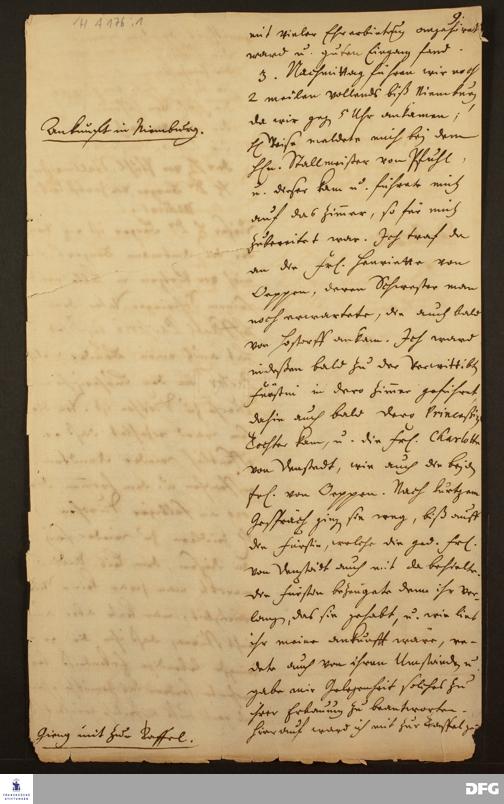 H A 176 : 1
9.
mit vieler Ehrerbietung angehöret
ward u. guten Eingang fand.
3. Nachmittag fuhren wir noch
2 meilen vollends biß Nienburg,
Ankunfft in Nienburg.
da wir geg 5 Uhr ankamen;
H meldete mich bei dem
Hhn. Stallmeister von Pfuhl,
u. dieser kam u. führete mich
auf das Zimmer, so für mich
zubereitet war. Ich traf da
an die Frl. Henriette von
Oeppen, deren Schwester man
noch erwartete, die auch bald
von ankam. Ich ward
indeßen bald zu der Verwittibt
Fürstin in dero Zimmer geführet
dahin auch bald dero Princeßin
Tochter kam, u. die Frl. Charlotte
von Venstedt, wie auch die beid
frl. von Oeppen. Nach kurtzem
Gespräch ging sie weg, biß auff
die Fürstin, welche die ged. Frl.
von Venstedt auch mit da behielte.
Die Fürstin bezeugete dann ihr Ver
langen, das sie gehabt, u. wie lieb
ihr meine ankunfft wäre, re-
dete auch von ihren Umständen u.
gabe mir Gelegenheit solches zu
ihrer Erbauung zu beantworten.
Gieng mit zur Taffel.
Hierauf ward ich mit zur Taffel ge
FRANCKESCHE
STIFTUNGEN
DFG